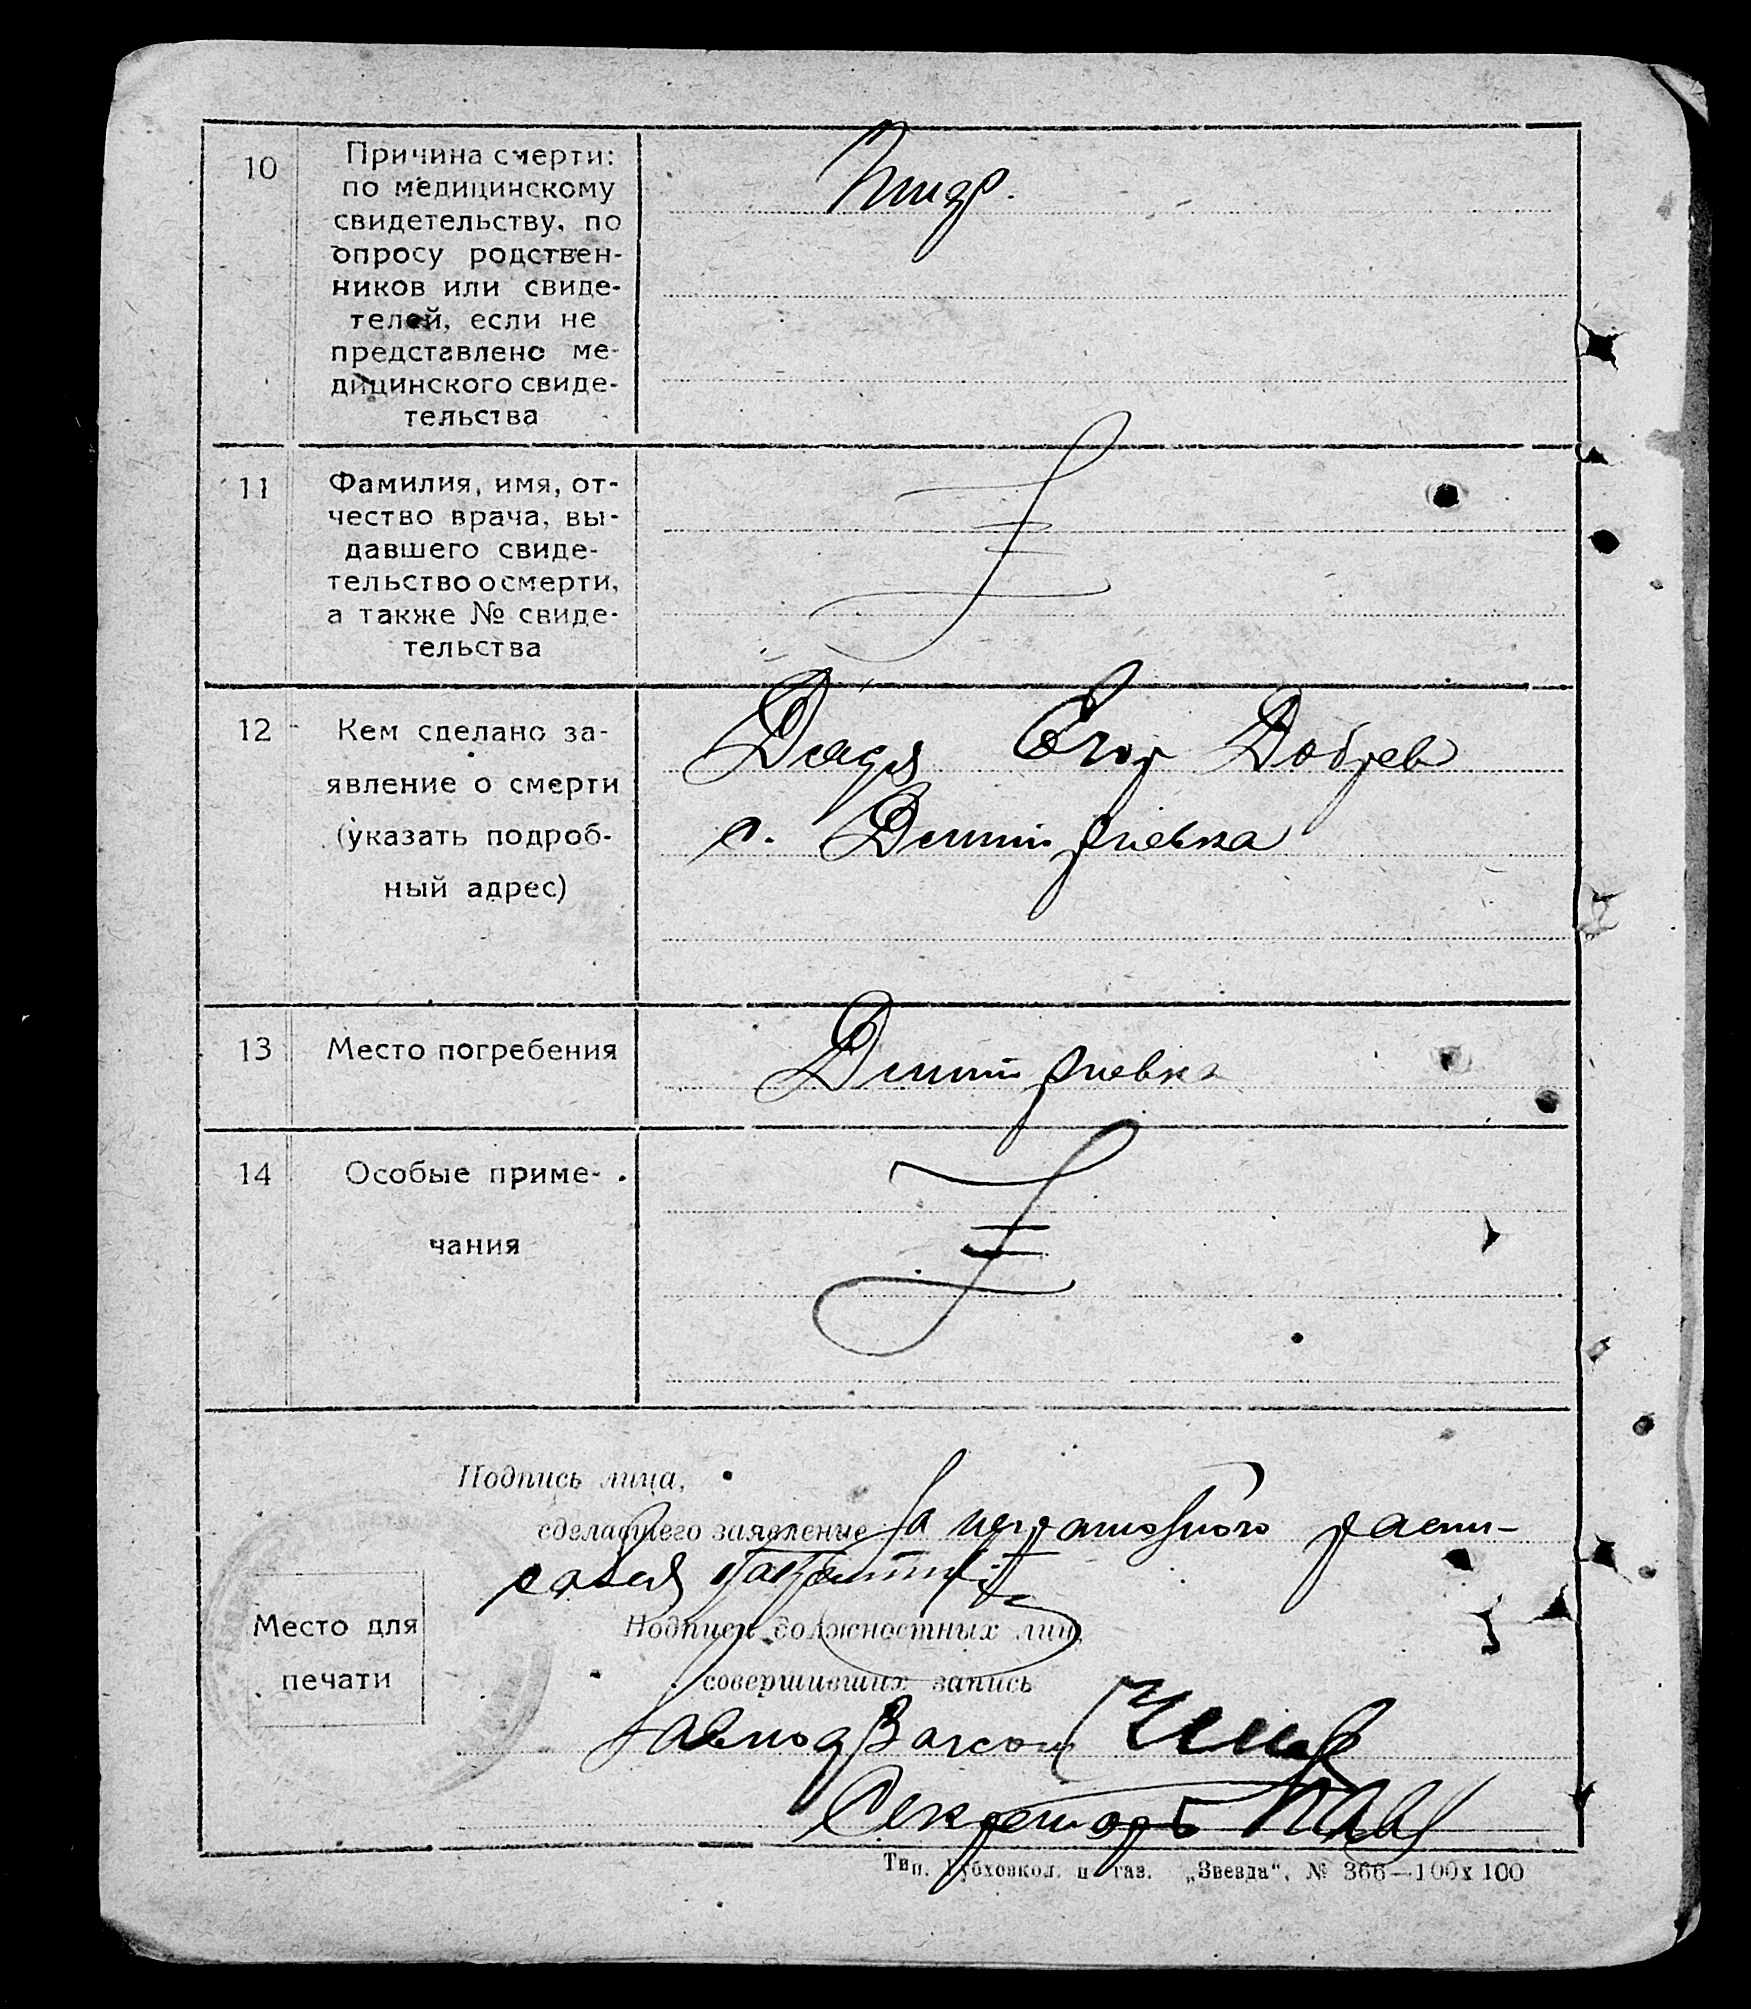 10
Причина смерти:
по медицинскому
свидетельству, по
опросу родствен-
ников или свиде-
телей, если не
представлено ме-
дицинского свиде-
тельства
11
Фамилия, имя, от-
чество врача, вы-
давшего свиде-
тельство о смерти,
а также № свиде-
тельства
12
Кем сделано за-
явление о смерти
(указать подроб-
ный адрес)
Дядя Егор Добрев
с. Дмитриевка
13
Место погребения
Дмитриевка
14
Особые приме-
чания
Подпись лица,
сделавшего заявление За неграмотного распи-
сался
Место для
печати
Подписи должностных лиц,
совершивших запись
Завподзагсом
Секретарь
Тип. газ. „Звезда“, № 366—100х100